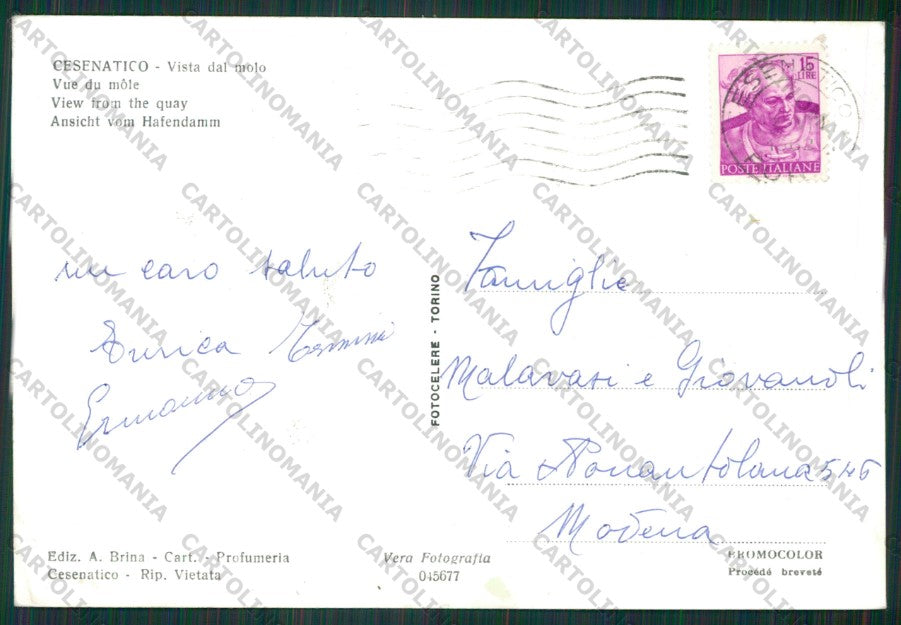 CESENATICO - Vista dal molo
Vue du môle
View from the quay
Ansicht vom Hafendamm
15
LIRE
POSTE ITALIANE
un caro saluto
Enrica
Ermanno
FOTOCELERE - TORINO
Famiglie
Malavasi e Giovanoli
Via Nonantolana 546
Modena
Ediz. A. Brina - Cart. - Profumeria
Cesenatico - Rip. Vietata
Vera Fotografia
045677
FROMOCOLOR
Procédé breveté
CARTOLINOMANIA